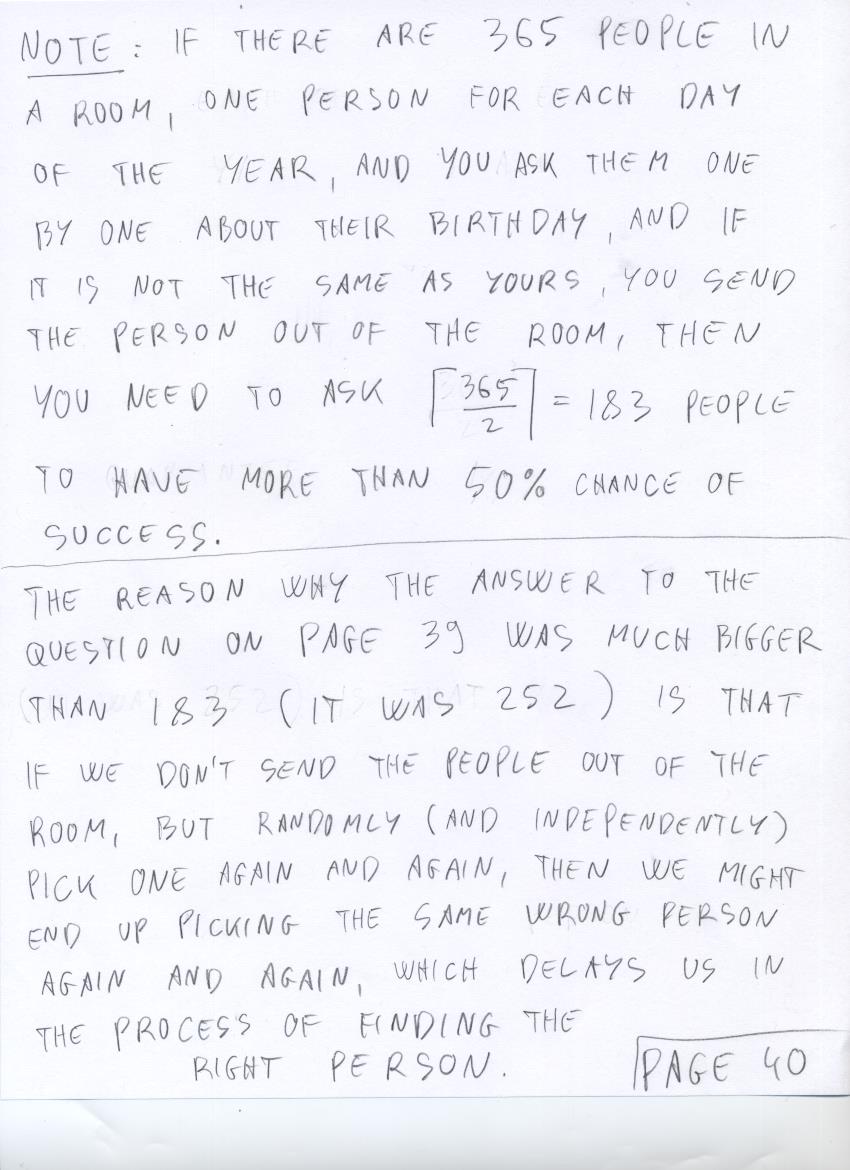 NOTE: IF THERE ARE 365 PEOPLE IN
A ROOM, ONE PERSON FOR EACH DAY
OF THE YEAR, AND YOU ASK THEM ONE
BY ONE ABOUT THEIR BIRTHDAY, AND IF
IT IS NOT THE SAME AS YOURS, YOU SEND
THE PERSON OUT OF THE ROOM, THEN
YOU NEED TO ASK ⌈365/2⌉ = 183 PEOPLE
TO HAVE MORE THAN 50% CHANCE OF
SUCCESS.
THE REASON WHY THE ANSWER TO THE
QUESTION ON PAGE 39 WAS MUCH BIGGER
THAN 183 (IT WAS 252) IS THAT
IF WE DON'T SEND THE PEOPLE OUT OF THE
ROOM, BUT RANDOMLY (AND INDEPENDENTLY)
PICK ONE AGAIN AND AGAIN, THEN WE MIGHT
END UP PICKING THE SAME WRONG PERSON
AGAIN AND AGAIN, WHICH DELAYS US IN
THE PROCESS OF FINDING THE
RIGHT PERSON.
PAGE 40